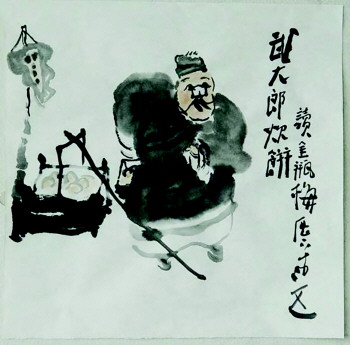 武大郎炊餅
讀金瓶梅